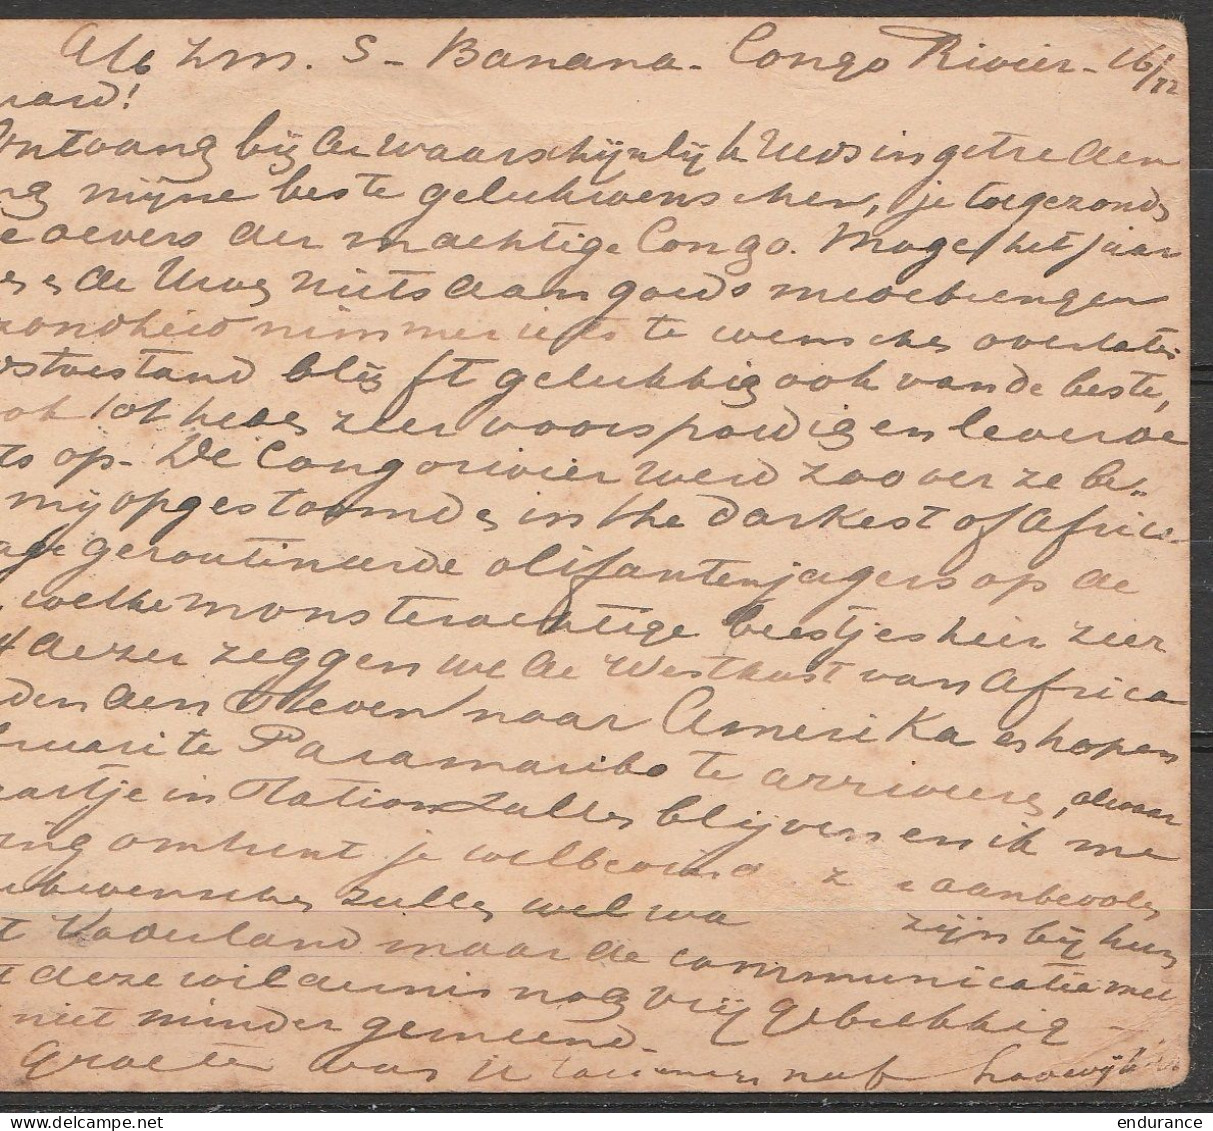 a/b Zm. S - Banana - Congo Rivier - 16/1 /
waard!
Ontvang bij de waarschijnlijk reeds ingetreden
mijne beste gelukwenschen, je toegezonden
oevers der machtige Congo. Moge het jaar
de niets dan goeds medebrengen
nimmer iets te wenschen overlaten
toestand blijft gelukkig ook van de beste,
ook tot heden zeer voorspoedig en leverde
op - De Congorivier werd zoover ze be-
mij opgestoomd, in the darkest of Africa
geroutineerde olifantenjagers op de
, welke monsterachtige beestjes hier zeer
dezer zeggen we de Westkust van Africa
den steven naar Amerika en hopen
te Paramaribo te arriveeren, alwaar
in station zullen blijven en ik me
omtrent je welbevind aanbevolen
zullen wel wa zijn bij hun
Vaderland maar de communicatie met
deze wildernis nog vrij gebrekkig -
niet minder gemeend -
Groeten van
endurance
www.delcampe.net